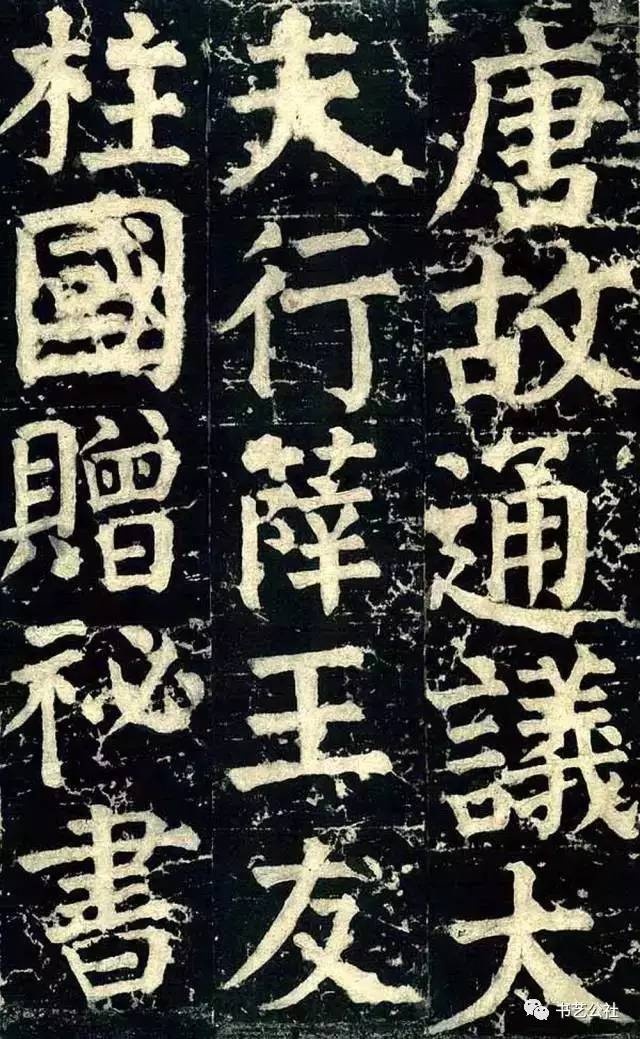 唐故通議大
夫行薛王友
柱國贈祕書
书艺公社